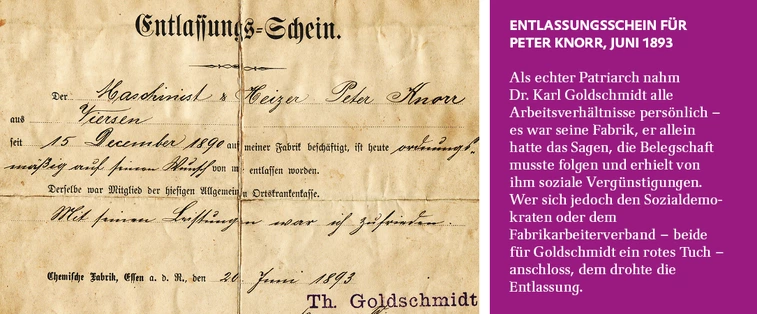 Entlassungs=Schein.
Der Maschinist & Heizer Peter Knorr
aus Viersen
seit 15 December 1890 auf meiner Fabrik beschäftigt, ist heute ordnungs-
mäßig auf seinen Wunsch von mir entlassen worden.
Derselbe war Mitglied der hiesigen Allgemein Ortskrankenkasse.
Mit seinen Leistungen war ich zufrieden.
Chemische Fabrik, Essen a. d. R., den 20 Juni 1893
Th. Goldschmidt
ENTLASSUNGSSCHEIN FÜR
PETER KNORR, JUNI 1893
Als echter Patriarch nahm
Dr. Karl Goldschmidt alle
Arbeitsverhältnisse persönlich –
es war seine Fabrik, er allein
hatte das Sagen, die Belegschaft
musste folgen und erhielt von
ihm soziale Vergünstigungen.
Wer sich jedoch den Sozialdemo-
kraten oder dem
Fabrikarbeiterverband – beide
für Goldschmidt ein rotes Tuch –
anschloss, dem drohte die
Entlassung.